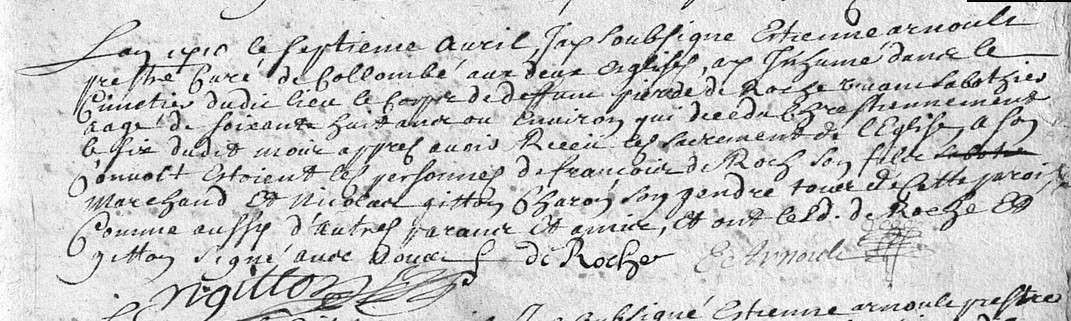 Lan 1710 le septieme avril, Jay soubsigné Estienne arnoult
prestre Curé de Collombé aux deux Eglises, ay Inhumé dans le
Cimetier dudit lieu le Corps de deffunt pierre de Roche vivant sabothier
aagé de soixante huit ans ou Environ qui deceda Chrestiennement
le six dudit mois appres avoir Receu les sacrement de l'Eglise, a son
Convoit Estoient les personnes de francois de Roche son fils
Marchand Et Nicolas gitton Charon son gendre tous de cette parois
Comme aussy d'autres parans Et amis, Et ont led. de Roche Et
gitton signé avec nous de Roche E Arnoult
n gitton
soubsigné Estienne arnoult prestre